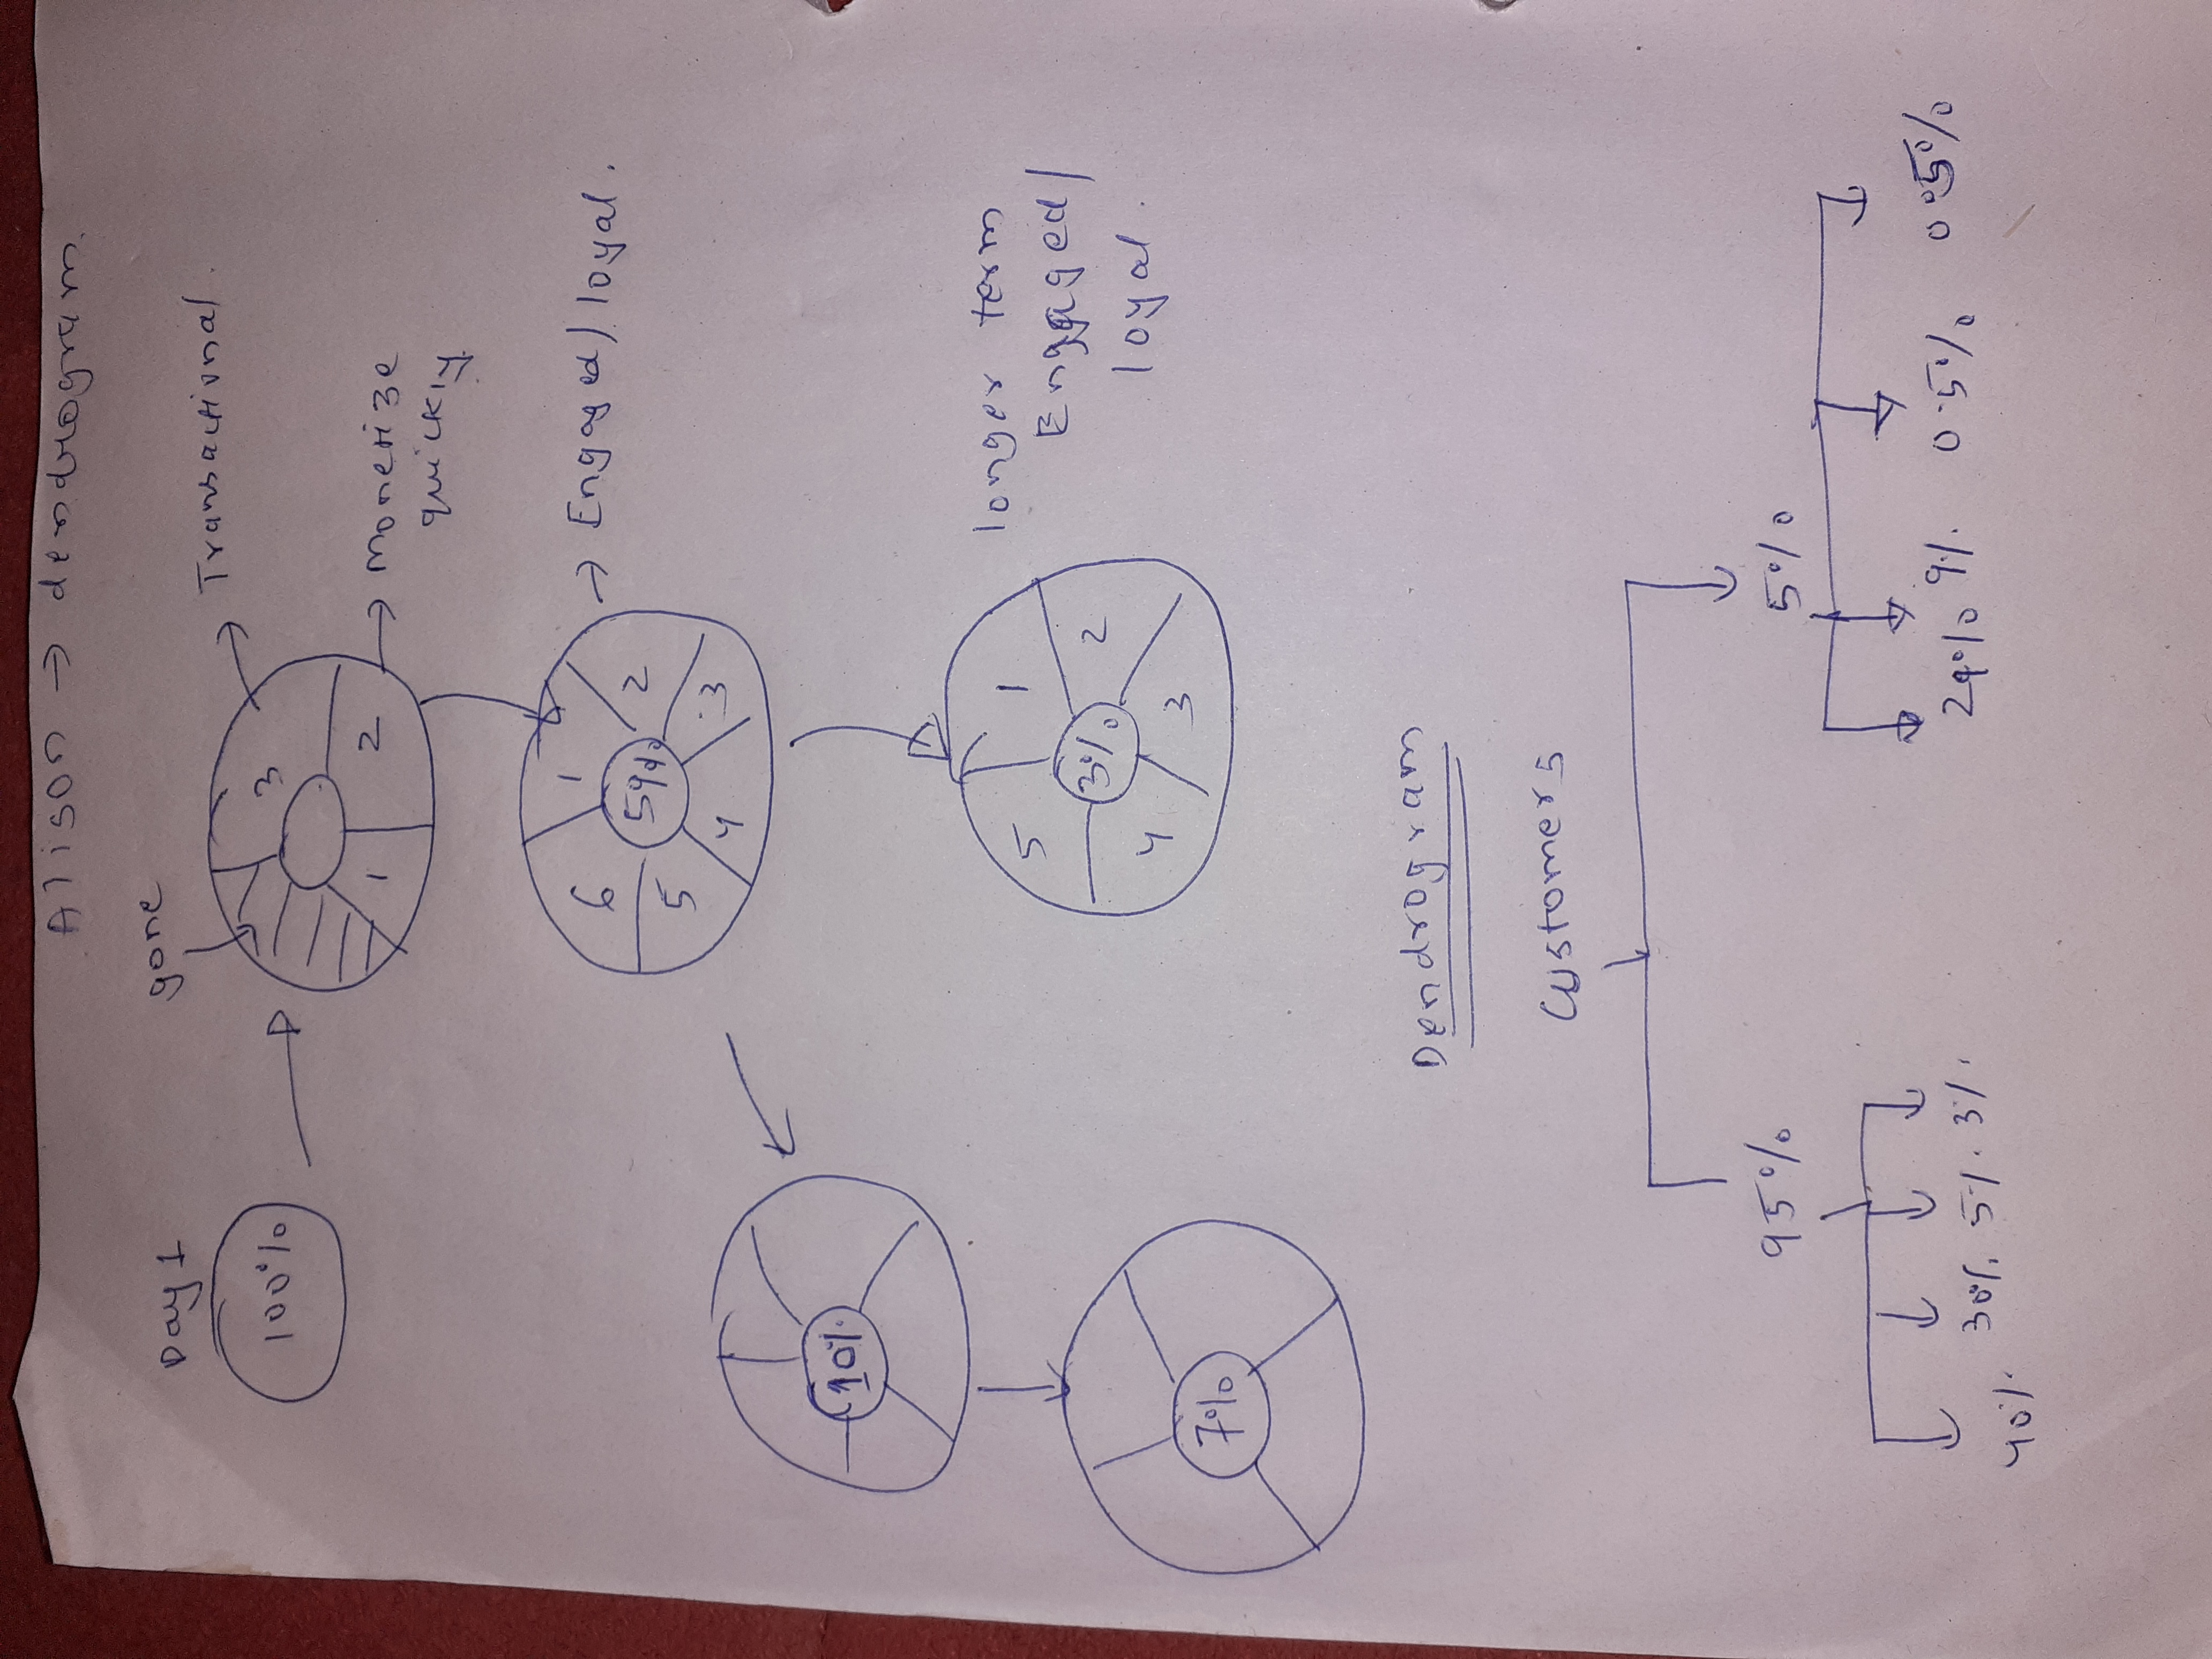 Alison → dendrogram.
Day 1
100%
gone
3
1
2
→ Transactional.
→ Monetize
quickly
6
1
2
3
4
5
→ Engaged/loyal.
10%
5
1
2
3
4
3%
longer term
Engaged/
loyal.
7%
Dendrogram
Customers
95%
5%
40%
30%
5%
3%
9%
0.5%
0.5%